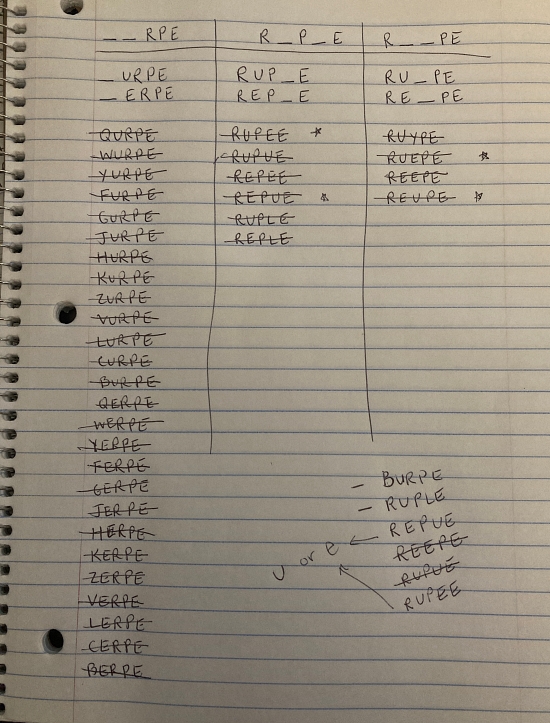 _ _ RPE
_ URPE
_ ERPE
QURPE
WURPE
YURPE
FURPE
GURPE
JURPE
HURPE
KURPE
ZURPE
VURPE
LURPE
CURPE
BURPE
QERPE
WERPE
YERPE
FERPE
GERPE
JERPE
HERPE
KERPE
ZERPE
VERPE
LERPE
CERPE
BERPE
R _ P _ E
RUP _ E
REP _ E
RUPEE *
RUPUE
REPEE
REPUE *
RUPLE
REPLE
R _ _ PE
RU _ PE
RE _ PE
RUYPE
RUEPE *
REEPE
REUPE *
- BURPE
- RUPLE
REPUE
REEPE
RUPUE
RUPEE
U or e